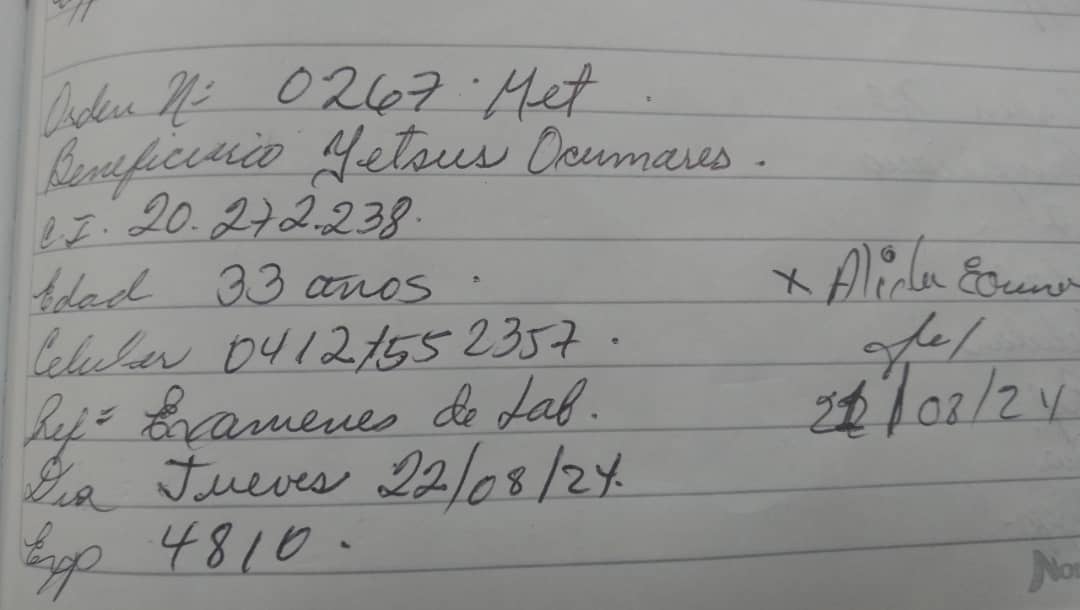 Orden N= 0267 · Met.
Beneficiario Yetsus Ocumares.
C.I. 20.272.238.
Edad 33 años.
Celular 0412 1552357.
Ref= Examenes de Lab.
Dia Jueves 22/08/24.
Exp 4810.
x Alida
/08/24
Nor